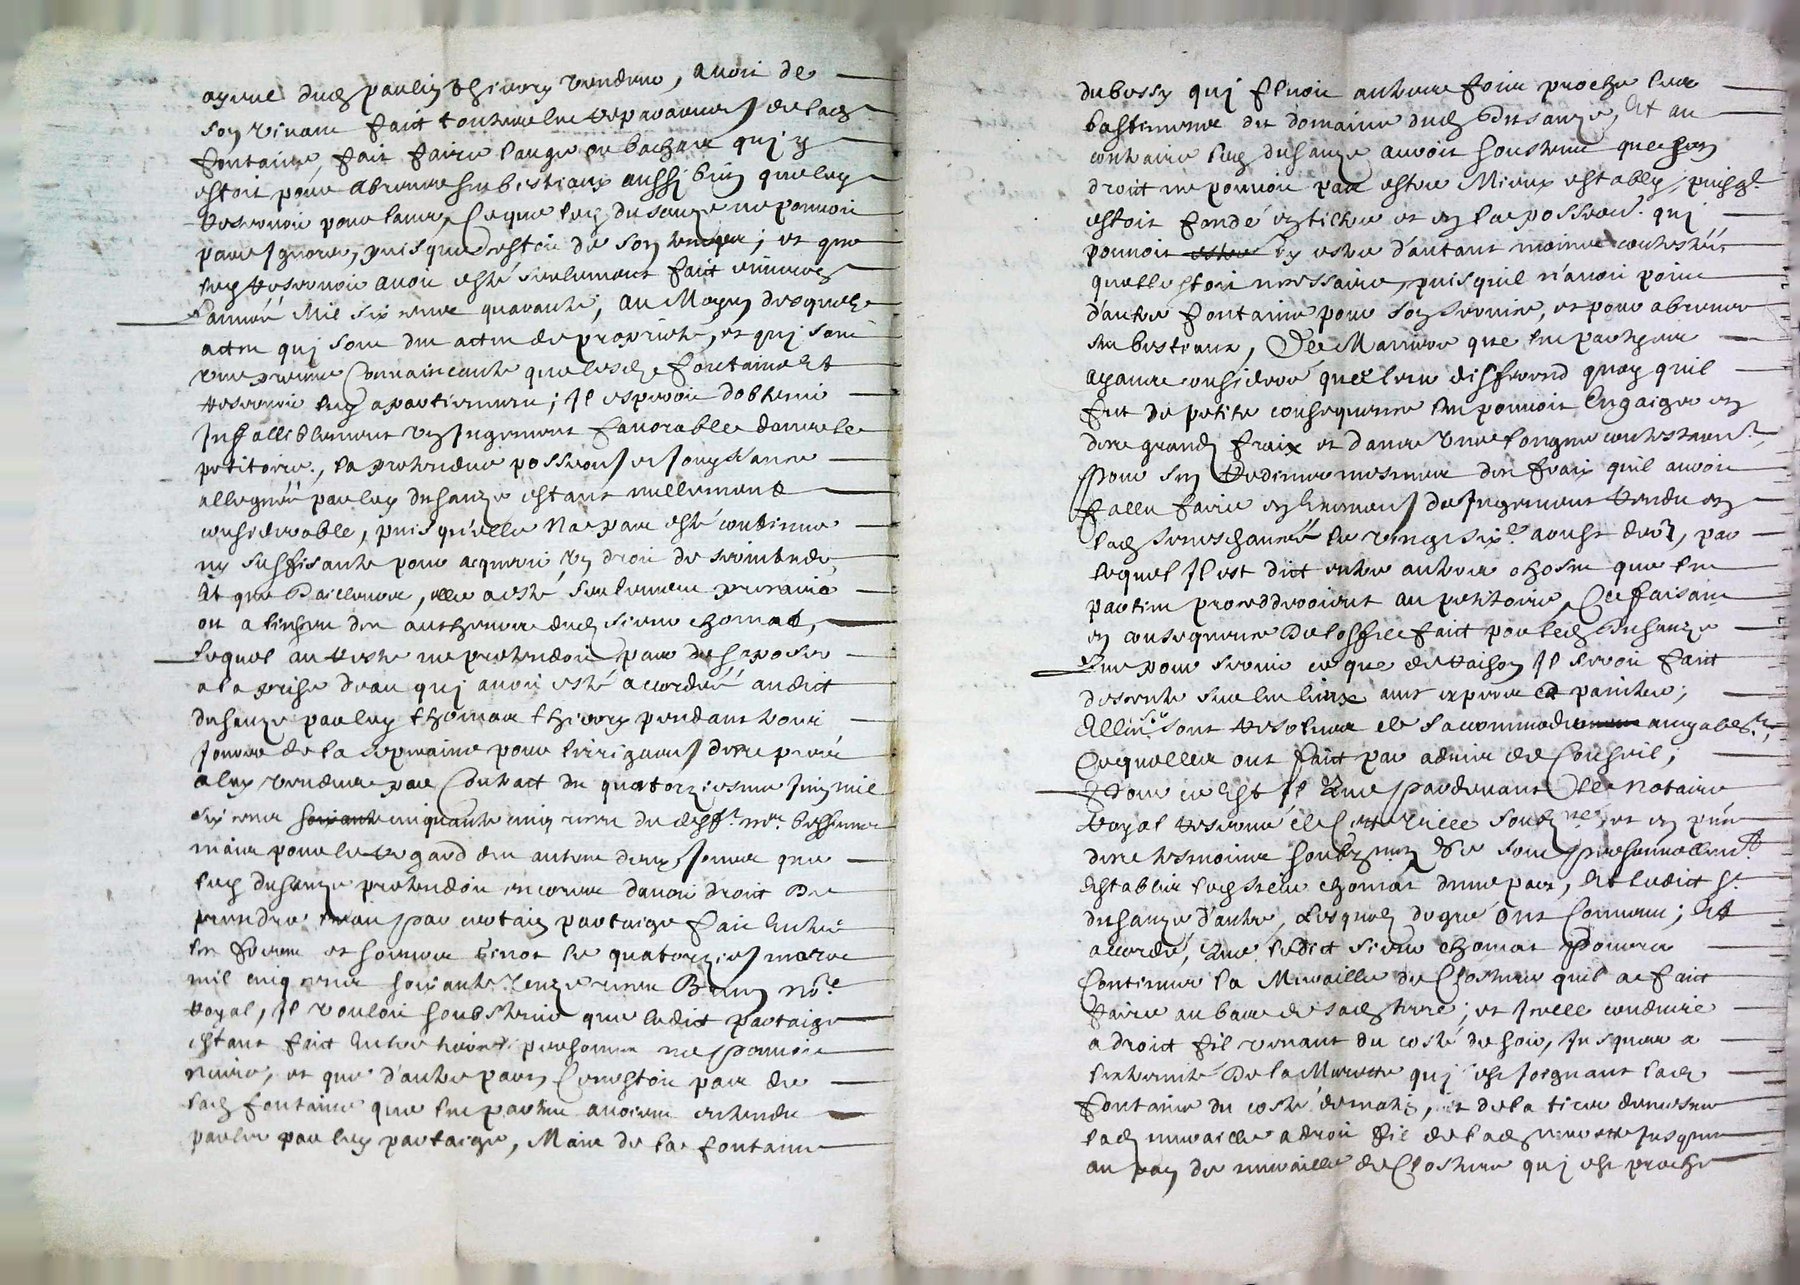 ayeul dud paulin thierry vendeur, avoit de
son vivant faict toutes les reparations de lad
fontaine, fait faire lauge ou bachat quj y
estoit pour abreuver ses bestiaux aussj bien que led
reservoir pour laver, Ce que led du sauze ne pouvoit
pas Ignorer, puis que cestoit de son temps; et que
led reservoir avoit esté seulement faict environ
Lannée Mil six cens quarante, au Moyen desquelz
actes quj sont des actes de proprieté, et quj sont
une preuve Convaincante que lesd fontaine Et
reservoir luy apartiennent; Il esperoit dobtenir
Infalliblement un Jugement favorable dans le
petitoire, la pretendue possession et Jouyssance
alleguée par led du sauze estant nullement
considerable, puis qu'elle na pas esté continue
ny suffisante pour acquerir un droit de servitude,
Et que dailleurs, elle a esté seulement precaire
ou a linsceu des autheurs dud sieur chomat,
Lequel au reste ne pretendoit pas de s'oposer
a la prise deau quj avoit esté accordée audict
du sauze par led thomas thierry pendant trois
Jours de la sepmaine pour lirrigation des prés
a luy vendus par Contract du quatorziesme Juin mil
six cens cinquante cinq receu du deff. no.re bessonnet
mais pour le regard des autres deux Jours que
led du sauze pretendoit encores davoir droit de
prendre leau par certain partaige fait Entre
les freres et soeurs Genot le quatorzies mars
mil cinq cens soixante unze receu Brun no.re
royal, Il vouloit soubstenir que ledict partaige
estant fait Entre tierces personnes ne pouvoit
nuire, et que d'autre part, Cenestoit pas de
lad fontaine que les parties avoient entendu
parler par led partaige, Mais de la fontaine
du bessy quj fluoit autrefois proche les
bastimens du domaine dud du sauze, Et au
contraire led du sauze avoit soustenu que son
droit ne pouvoit pas estre Mieux estably, puisql
estoit fondé en tiltre et en la possession quj
pouvoit luy estre d'autant moins contestée
quelle estoit necessaire, puis quil n'avoit point
d'autre fontaine pour son service, et pour abreuver
ses bestiaux, De Maniere que les parties
ayants consideré que leur different quoy quil
fut de petite consequence les pouvoit Engaiger en
des grands fraix et dans une longue contestation,
Pour sen redimer mesmes des fraix quil avoit
fallu faire en Execution du Jugement rendu en
lad seneschaucée le vingt six.e aoust der.r, par
lequel Il est dict entre autres choses que les
parties proceddroient au petitoire, Ce faisant
en consequence de loffre fait par led du sauze
Que pour servir ce que de raison Il seroit faict
descente sur les lieux avec experts et peintre;
Elles se sont resolues de saccommoder amyablem.t,
Ce quelles ont faict par advis de Conseil;
Pour ce Est Il Que Pardevant Le Notaire
royal reservé de Cette Ville soubz.né et en pñce
des tesmoins soubz nommez se sont Personnellem.t
Establis led sieur chomat dune part, Et ledict s.r
du sauze d'autre, Lesquelz de gré Ont Convenu; Et
accordé, Que ledict sieur chomat Pourra
Continuer la Muraille de Closture quil a fait
faire au bas de sad terre; et Jcelle conduire
a droict fil venant du costé de soir, Jusques a
lextremité De la Murette quj est Joignant lad
fontaine du costé de matin, et de la tirer de mesme
lad muraille a droit fil de lad murette Jusques
au pan de muraille de Closture quj est proche